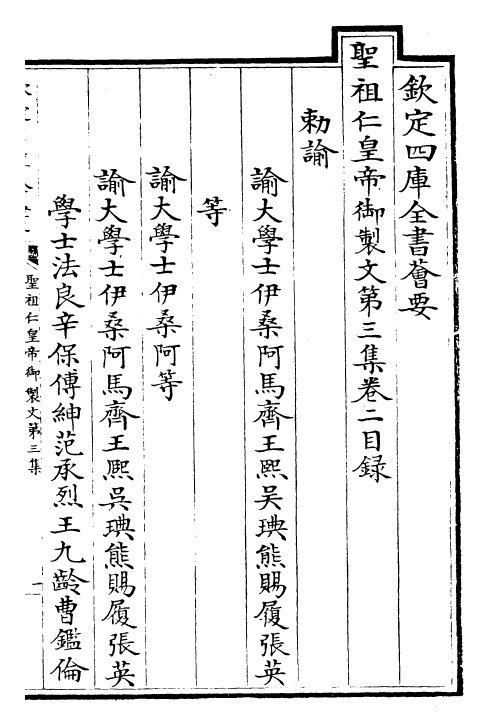 欽定四庫全書薈要
聖祖仁皇帝御製文第三集卷二目録
勅諭
諭大學士伊桑阿馬齊王熙吴琠熊賜履張英
等
諭大學士伊桑阿等
諭大學士伊桑阿馬齊王熙吳琠熊賜履張英
學士法良辛保傅紳范承烈王九齡曹鑑倫
聖祖仁皇帝御製文第三集
一